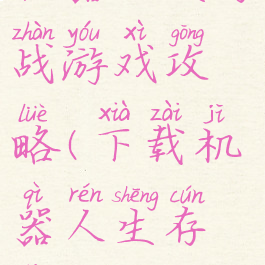 zhàn yóu xì gōng
战游戏攻
lüè xià zài jī
略(下载机
qì rén shēng cún
器人生存